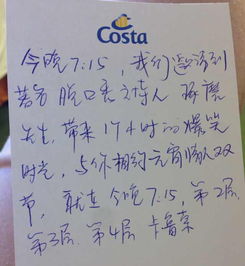 Costa
今晚7:15，我们邀请到
著名脱口秀主持人
先生，带来1个小时的爆笑
时光，与你相约元宵情人双
节，就在今晚7:15，第2层
第3层 第4层 卡鲁索